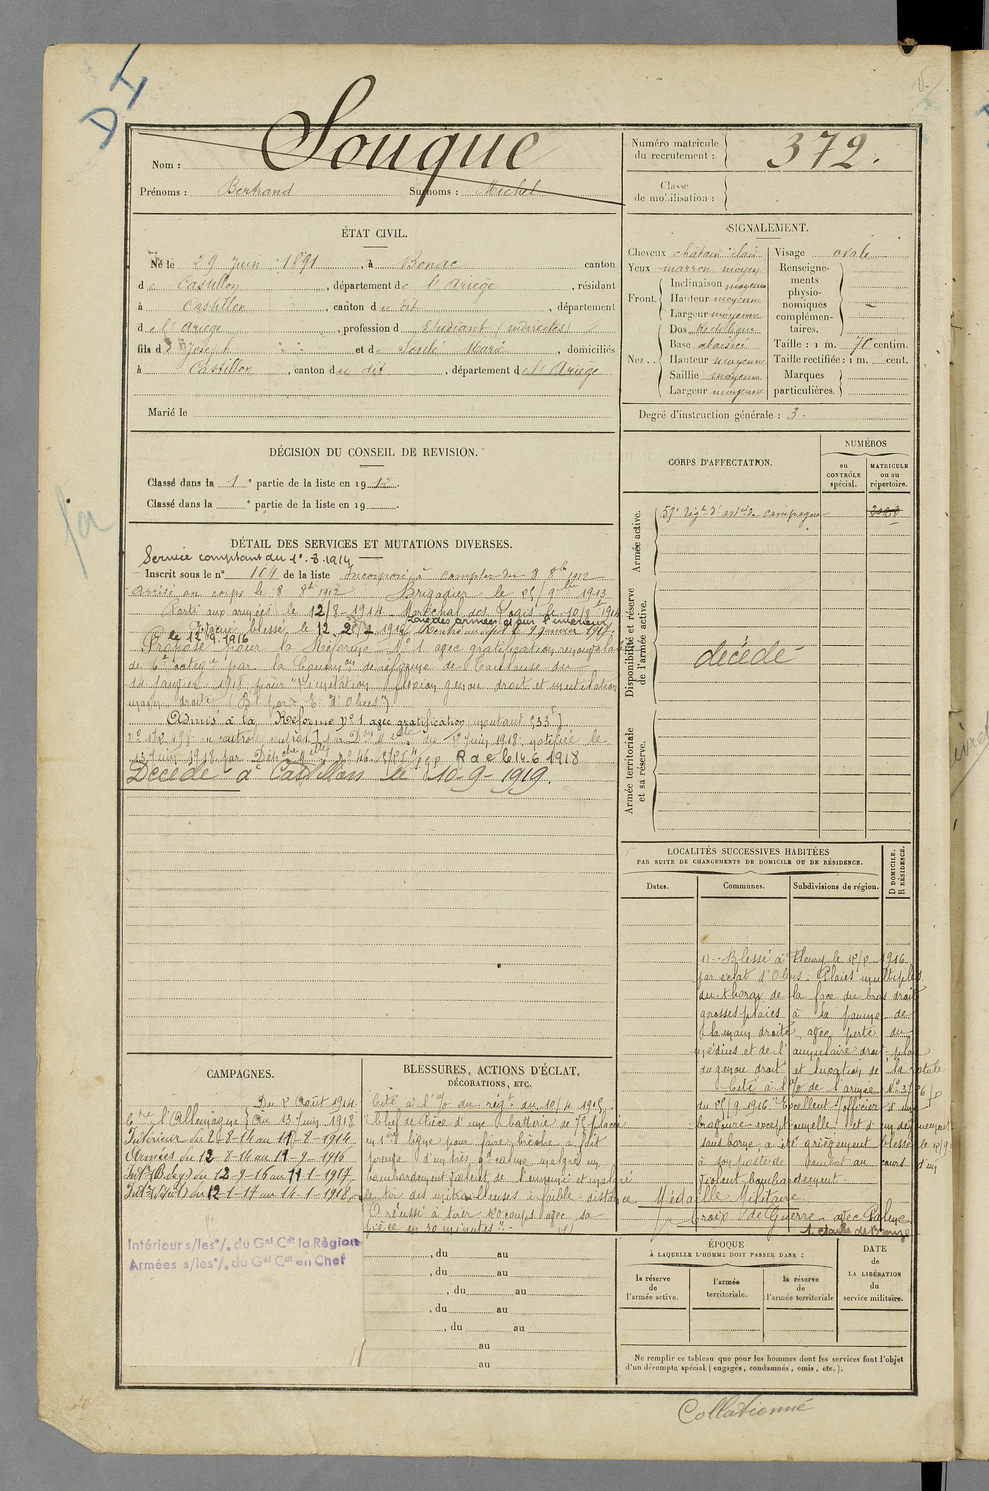 D 4
Nom : Souque
Prénoms : Bertrand Surnoms : Michel
Numéro matricule
du recrutement : 372.
Classe
de mobilisation :
ÉTAT CIVIL.
Né le 29 Juin 1891, à Bonac canton
de Castillon, département de l'Ariège, résidant
à Castillon, canton du dit, département
de l'Ariège, profession d Etudiant (indirectes)
fils de Joseph et de Soulé Marie, domiciliés
à Castillon, canton du dit, département de l'Ariège
Marié le
SIGNALEMENT.
Cheveux châtain clair
Yeux marron moyen
Front. Inclinaison moyenne
Hauteur moyenne
Largeur moyenne
Nez.. Dos rectiligne
Base
Hauteur moyenne
Saillie moyenne
Largeur moyenne
Visage ovale
Renseigne-
ments
physio-
nomiques
complémen-
taires.
Taille : 1 m. 70 centim.
Taille rectifiée : 1 m. cent.
Marques
particulières.
Degré d'instruction générale : 3.
DÉCISION DU CONSEIL DE REVISION.
Classé dans la 1e partie de la liste en 1912.
Classé dans la e partie de la liste en 19
DÉTAIL DES SERVICES ET MUTATIONS DIVERSES.
Service comptant du 1er.8.1914
Inscrit sous le n° 104 de la liste Incorporé à compter du 8 8bre 1912
Arrivé au corps le 8 8bre 1912 Brigadier le 25/9 1913
Parti aux armées le 12/8 1914 Maréchal des Logis le 10/8 1914
Zone des armées et sur l'intérieur
Evacué blessé le 12 1916 Rentré au dépôt le 9 Janvier 1917
le 12 9.1916
Proposé pour la Réforme N° 1 avec gratification renouvelable
de 6e catégie par la Common de réforme de Toulouse du
14 Janvier 1918 pour "Limitation flexion genou droit et mutilation
main droite
Admis à la Réforme N° 1 avec gratification montant 333f
du 8 Juin 1918 notifiée le
13 Juin 1918 par R a c le 14-6 1918
Décédé à Castillon le 10-9-1919.
CORPS D'AFFECTATION.
NUMÉROS
au
CONTRÔLE
spécial.
MATRICULE
ou au
répertoire.
Armée active.
57e Régt d'artrie de campagne
Disponibilité et réserve
de l'armée active.
décédé
Armée territoriale
et sa réserve.
LOCALITÉS SUCCESSIVES HABITÉES
PAR SUITE DE CHANGEMENTS DE DOMICILE OU DE RÉSIDENCE.
Dates. Communes. Subdivisions de région.
D DOMICILE.
R RÉSIDENCE.
(1) Blessé à Fleury le 12/9 1916
par éclat d'Obus. Plaies multiples
du thorax de la face du bras droit
grosses plaies à la paume de
la main droite avec perte du
médius et de l'annulaire droit, plaie
du genou droit et luxation de la rotule
Cité à l'O/ de l'armée
du 25/9 1916 "Excellent s/officier d'une
bravoure exceptionnelle et d'un dévouement
sans borne, a été grièvement blessé le 12/9
à son poste de combat au cours d'un
violent bombardement
Médaille Militaire
Croix de Guerre avec Palme
1 étoile de Bronze
CAMPAGNES.
Ctre l'Allemagne { Du 2 Août 1914
Au 13 Juin 1918
Intérieur du 2-8-14 au 11-8-1914
Armées du 12-8-14 au 11-9-1916
Intr (B. de g.) du 12-9-16 au 11-1-1917
Intr (Seul) du 12-1-17 au 14-1-1918
Intérieur s/les o/. du Gal Cdt la Région
Armées s/les o/. du Gal Cdt en Chef
BLESSURES, ACTIONS D'ÉCLAT,
DÉCORATIONS, ETC.
Cité à l'O/ du régt du 10/4 1915.
"Chef de Pièce d'une batterie de 75 placée
en 1ère ligne pour faire brèche a fait
preuve d'un très gd calme, malgré un
bombardement violent de l'ennemi et malgré
le tir des mitrailleuses à faible distance
a réussi à tirer 120 coups avec sa
pièce en 30 minutes". (1)
, du au
, du au
, du au
, du au
, du au
au
au
ÉPOQUE
À LAQUELLE L'HOMME DOIT PASSER DANS :
la réserve
de
l'armée active.
l'armée
territoriale.
la réserve
de
l'armée territoriale
DATE
de
LA LIBÉRATION
du
service militaire.
Ne remplir ce tableau que pour les hommes dont les services font l'objet
d'un décompte spécial (engagés, condamnés, omis, etc.).
Collationné